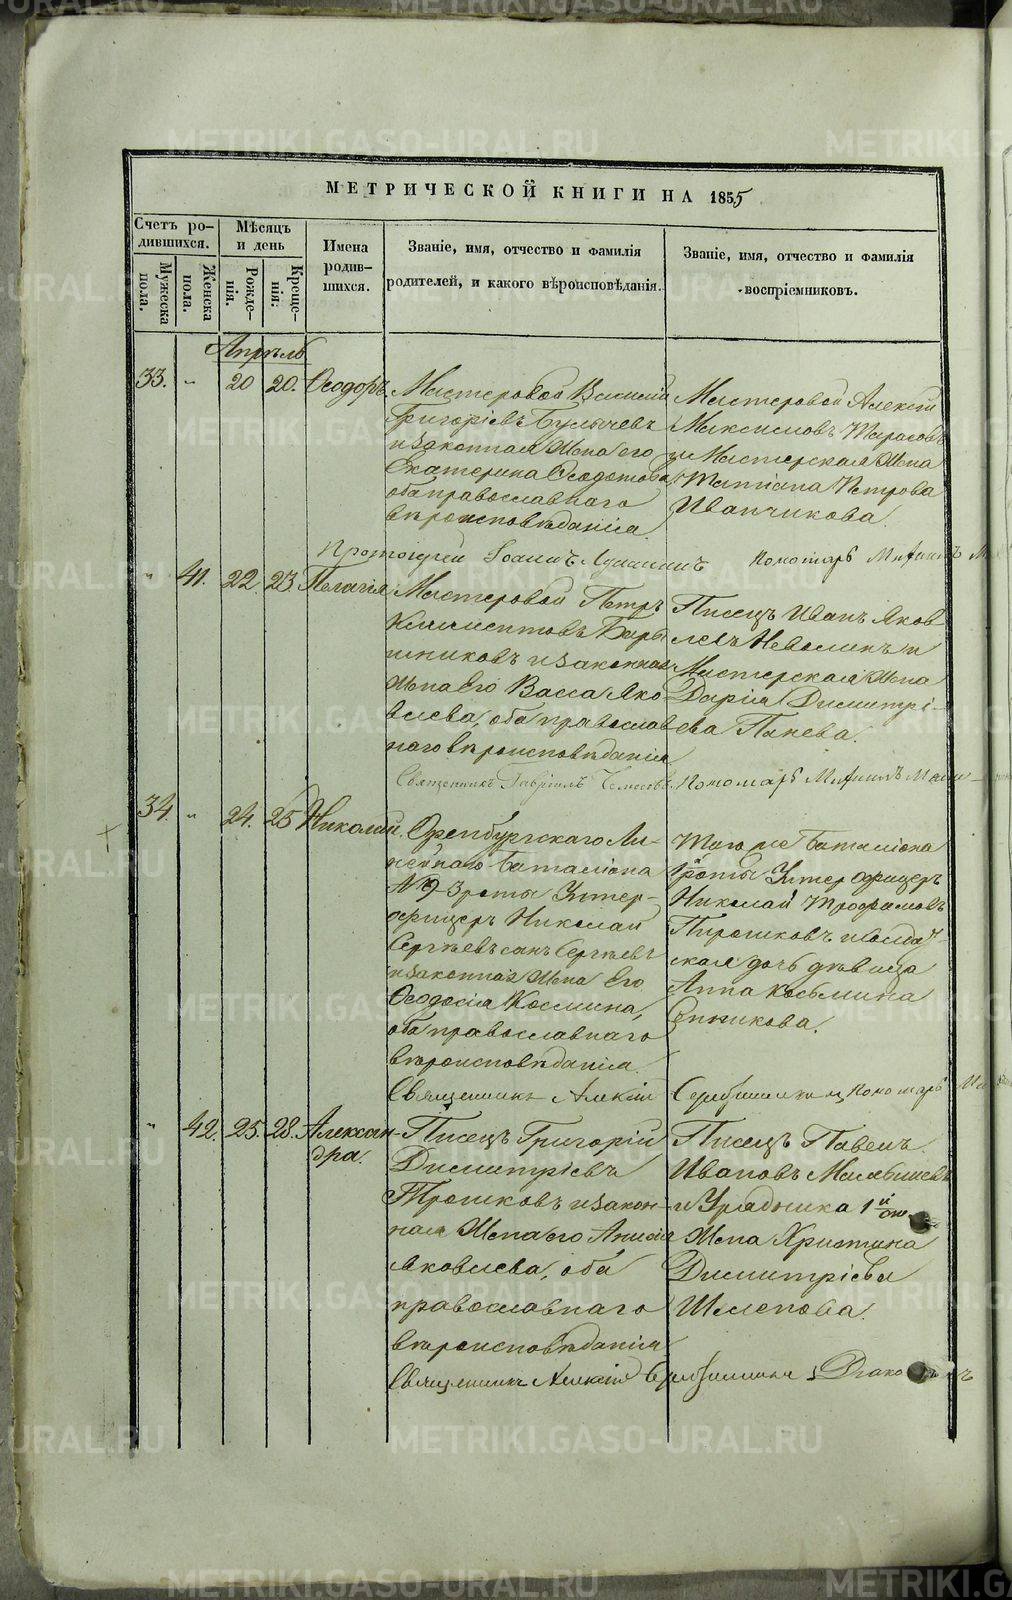 МЕТРИЧЕСКОЙ КНИГИ НА 1855
Счетъ ро-
дившихся.
Мужеска
пола.
Женска
пола.
Мѣсяцъ
и день
Рожде-
нія.
Креще-
нія:
Имена
родив-
шихся.
Званіе, имя, отчество и фамилія
родителей, и какого вѣроисповѣданія.
Званіе, имя, отчество и фамилія
воспріемниковъ.
Апрѣль
33. „ 20 20. Ѳеодоръ.
Мастеровой Василій
Григоріевъ Булычевъ
и законная Жена его
Екатерина Ѳеодотова
оба православнаго
вѣроисповѣданія.
Мастеровой Алексій
Максимовъ Тарасовъ
и Мастерская Жена
Татіана Петрова
Иванчикова.
Протоіерей Іоаннъ Пономарь
„ 41. 22. 23. Пелагія
Мастеровой Петръ
Климентовъ Бары
шниковъ и законная
Жена Его Васса Яко
влева, оба православ
наго вѣроисповѣданія
Писецъ Иванъ Яков
левъ Неволинъ и
Мастерская Жена
Дарія Димитрі-
ева Панева.
Священникъ Гавріилъ Пономарь
34. „ 24. 25 Николай.
Оренбургскаго Ли-
нейнаго Баталіона
№ 9 3 роты Унтер-
офицеръ Николай
Сергѣевъ сынъ Сергѣевъ
и законная Жена Его
Ѳеодосія Космина,
оба православнаго
вѣроисповѣданія.
Того же Баталіона
роты Унтер офицеръ
Николай Трофимовъ
Пирошковъ и Солдат-
ская дочь дѣвица
Анна Козьмина
Священникъ Алексій и Пономарь
„ 42. 25. 28. Алексан-
дра.
Писецъ Григорій
Димитріевъ
Трошковъ и закон-
ная Жена его Анисія
Яковлева, оба
православнаго
вѣроисповѣданія
Писецъ Павелъ
Ивановъ
и Урядника 1й
Жена Христина
Димитріева
Шленова.
Священникъ Алексій
METRIKI.GASO-URAL.RU